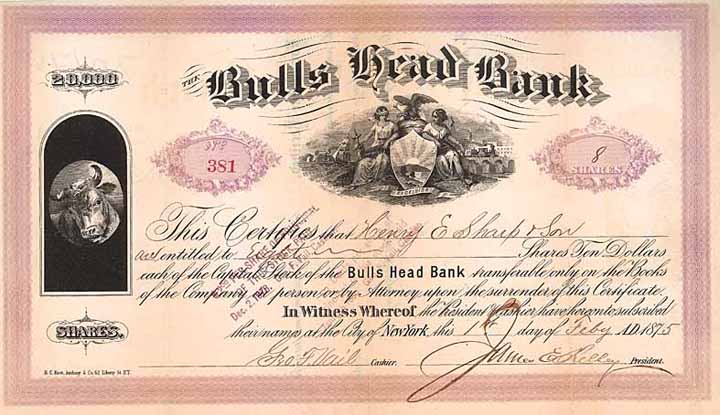 THE Bulls Head Bank
20,000
No.
381
8
SHARES.
EXCELSIOR
This Certifies that Henry E Sharp & Son
entitled to Shares Ten Dollars
each of the Capital Stock of the Bulls Head Bank transferable only on the Books
of the Company in person or by Attorney upon the surrender of this Certificate.
Dec. 2,
In Witness Whereof the President & Cashier have hereunto subscribed
SHARES.
their names, at the City of New York, this 1st day of Feby A.D. 1875
Geo. F. Vail Cashier. James E. Kelley President.